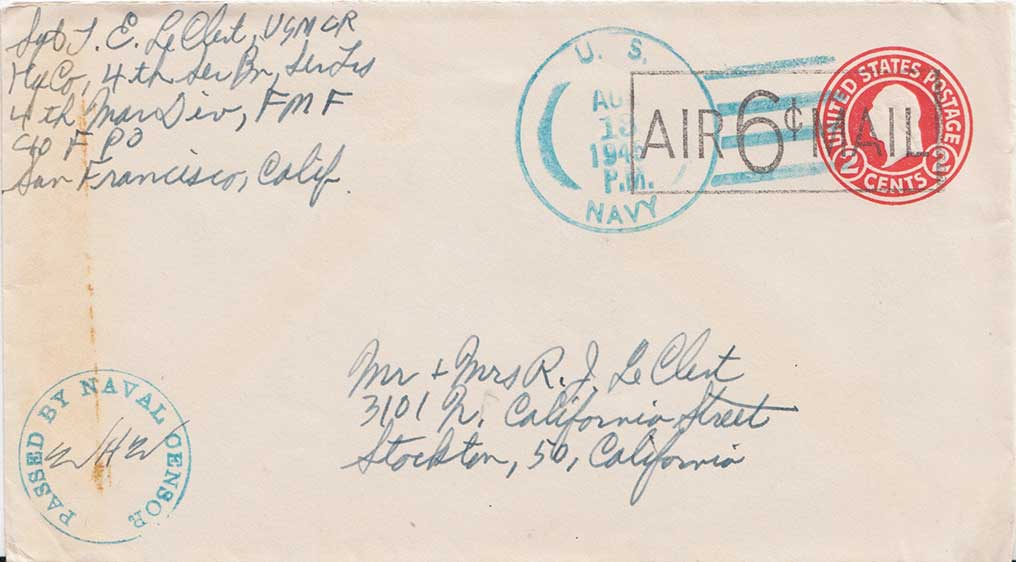 Sgt J. E. LeClert, USMCR
HqCo, 4th Ser Bn, Ser Trs
4th Mar Div, FMF
c/o F P O
San Francisco, Calif.
U. S.
AUG
13
194
P.M.
NAVY
AIR 6¢ MAIL
UNITED STATES POSTAGE
2 CENTS 2
Mr + Mrs R. J. LeClert
3101 N. California Street
Stockton, 50, California
PASSED BY NAVAL CENSOR